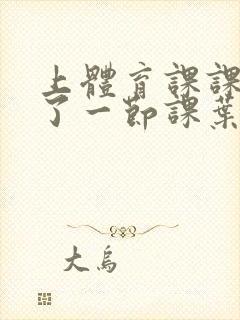 上體育課課
了一節課葉
大烏